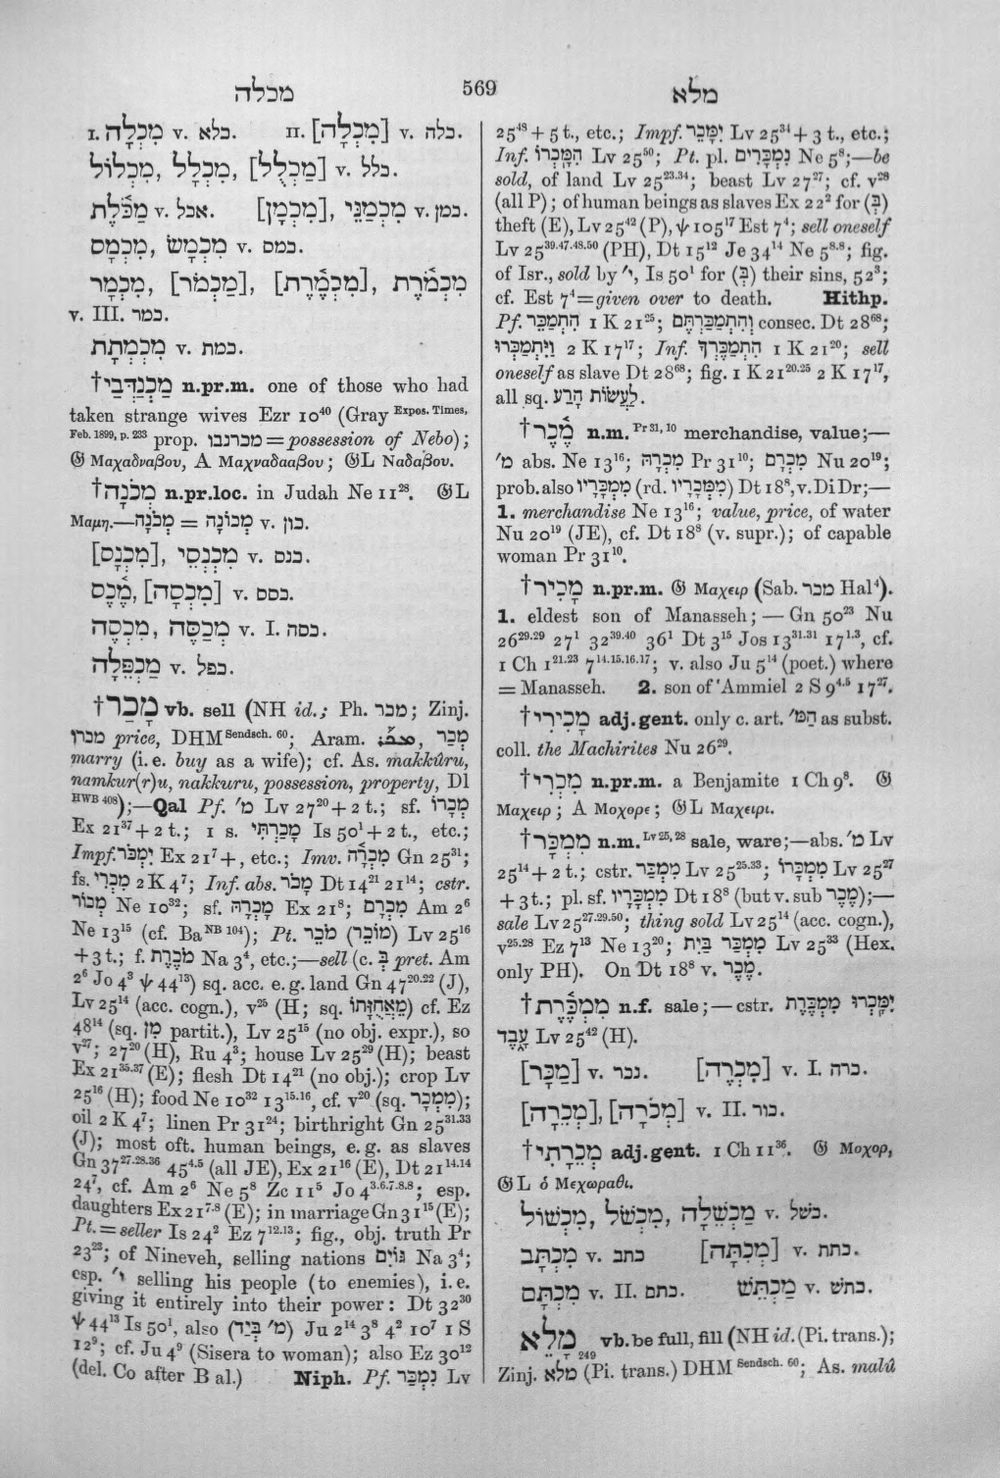 מכלה
569
מלא
I. מִכְלָה v. כלא. II. [מִכְלָה] v. כלה.
מִכְלוֹל, מִכְלָל, [מַכְלֻל] v. כלל.
מַכֹּלֶת v. אכל. [מִכְמָן], מִכְמַנֵּי v. כמן.
מִכְמָס, מִכְמָשׂ v. כמס.
מִכְמָר, [מַכְמֹר], [מִכְמֶרֶת], מִכְמֹרֶת
v. III. כמר.
מִכְמְתָת v. כמת.
†מַכְנַדְבַי n.pr.m. one of those who had
taken strange wives Ezr 10⁴⁰ (Gray Expos. Times,
Feb. 1899, p. 233 prop. מכרנבו = possession of Nebo);
𝔊 Μαχαδναβου, A Μαχναδααβου; 𝔊L Ναδαβου.
†מְכֹנָה n.pr.loc. in Judah Ne 11²⁸. 𝔊L
Μαμη.—מְכֹנָה = מְכוֹנָה v. כון.
[מִכְנָס], מִכְנְסֵי v. כנס.
מֶכֶס, [מִכְסָה] v. כסס.
מִכְסֶה, מְכַסֶּה v. I. כסה.
מַכְפֵּלָה v. כפל.
†מָכַר vb. sell (NH id.; Ph. מכר; Zinj.
מכרו price, DHM Sendsch. 60; Aram. מְכַר,
marry (i.e. buy as a wife); cf. As. makkûru,
namkur(r)u, nakkuru, possession, property, Dl
HWB 408);—Qal Pf. מ׳ Lv 27²⁰ + 2 t.; sf. מְכָרוֹ
Ex 21³⁷ + 2 t.; 1 s. מָכַרְתִּי Is 50¹ + 2 t., etc.;
Impf. יִמְכֹּר Ex 21⁷ +, etc.; Imv. מִכְרָה Gn 25³¹;
fs. מִכְרִי 2 K 4⁷; Inf. abs. מָכֹר Dt 14²¹ 21¹⁴; cstr.
מְכוֹר Ne 10³²; sf. מָכְרָהּ Ex 21⁸; מִכְרָם Am 2⁶
Ne 13¹⁵ (cf. Ba NB 104); Pt. מֹכֵר (מוֹכֵר) Lv 25¹⁶
+ 3 t.; f. מֹכֶרֶת Na 3⁴, etc.;—sell (c. בְּ pret. Am
2⁶ Jo 4³ ψ 44¹³) sq. acc. e.g. land Gn 47²⁰·²² (J),
Lv 25¹⁴ (acc. cogn.), v²⁵ (H; sq. מֵאֲחֻזָּתוֹ) cf. Ez
48¹⁴ (sq. מִן partit.), Lv 25¹⁵ (no obj. expr.), so
v²⁷; 27²⁰ (H), Ru 4³; house Lv 25²⁹ (H); beast
Ex 21³⁵·³⁷ (E); flesh Dt 14²¹ (no obj.); crop Lv
25¹⁶ (H); food Ne 10³² 13¹⁵·¹⁶, cf. v²⁰ (sq. מִמְכָּר);
oil 2 K 4⁷; linen Pr 31²⁴; birthright Gn 25³¹·³³
(J); most oft. human beings, e.g. as slaves
Gn 37²⁷·²⁸·³⁶ 45⁴·⁵ (all JE), Ex 21¹⁶ (E), Dt 21¹⁴·¹⁴
24⁷, cf. Am 2⁶ Ne 5⁸ Zc 11⁵ Jo 4³·⁶·⁷·⁸·⁸; esp.
daughters Ex 21⁷·⁸ (E); in marriage Gn 31¹⁵ (E);
Pt. = seller Is 24² Ez 7¹²·¹³; fig., obj. truth Pr
23²³; of Nineveh, selling nations גּוֹיִם Na 3⁴;
esp. י׳ selling his people (to enemies), i.e.
giving it entirely into their power: Dt 32³⁰
ψ 44¹³ Is 50¹, also (מ׳ בְּיַד) Ju 2¹⁴ 3⁸ 4² 10⁷ 1 S
12⁹; cf. Ju 4⁹ (Sisera to woman); also Ez 30¹²
(del. Co after B al.) Niph. Pf. נִמְכַּר Lv
25⁴⁸ + 5 t., etc.; Impf. יִמָּכֵר Lv 25³⁴ + 3 t., etc.;
Inf. הִמָּכְרוֹ Lv 25⁵⁰; Pt. pl. נִמְכָּרִים Ne 5⁸;—be
sold, of land Lv 25²³·³⁴; beast Lv 27²⁷; cf. v²⁸
(all P); of human beings as slaves Ex 22² for (בְּ)
theft (E), Lv 25⁴² (P), ψ 105¹⁷ Est 7⁴; sell oneself
Lv 25³⁹·⁴⁷·⁴⁸·⁵⁰ (PH), Dt 15¹² Je 34¹⁴ Ne 5⁸·⁸; fig.
of Isr., sold by י׳, Is 50¹ for (בְּ) their sins, 52³;
cf. Est 7⁴ = given over to death. Hithp.
Pf. הִתְמַכֵּר 1 K 21²⁵; וְהִתְמַכַּרְתֶּם consec. Dt 28⁶⁸;
וַיִּתְמַכְּרוּ 2 K 17¹⁷; Inf. הִתְמַכֶּרְךָ 1 K 21²⁰; sell
oneself as slave Dt 28⁶⁸; fig. 1 K 21²⁰·²⁵ 2 K 17¹⁷,
all sq. לַעֲשׂוֹת הָרַע.
†מֶכֶר n.m. Pr 31, 10 merchandise, value;—
מ׳ abs. Ne 13¹⁶; מִכְרָהּ Pr 31¹⁰; מִכְרָם Nu 20¹⁹;
prob. also מִמְכָּרָיו (rd. מִמִּכְרָיו) Dt 18⁸, v. Di Dr;—
1. merchandise Ne 13¹⁶; value, price, of water
Nu 20¹⁹ (JE), cf. Dt 18⁸ (v. supr.); of capable
woman Pr 31¹⁰.
†מָכִיר n.pr.m. 𝔊 Μαχειρ (Sab. מכר Hal⁴).
1. eldest son of Manasseh;—Gn 50²³ Nu
26²⁹·²⁹ 27¹ 32³⁹·⁴⁰ 36¹ Dt 3¹⁵ Jos 13³¹·³¹ 17¹·³, cf.
1 Ch 1²¹·²³ 7¹⁴·¹⁵·¹⁶·¹⁷; v. also Ju 5¹⁴ (poet.) where
= Manasseh. 2. son of ʿAmmiel 2 S 9⁴·⁵ 17²⁷.
†מָכִירִי adj.gent. only c. art. הַמּ׳ as subst.
coll. the Machirites Nu 26²⁹.
†מִכְרִי n.pr.m. a Benjamite 1 Ch 9⁸. 𝔊
Μαχειρ; A Μοχορε; 𝔊L Μαχειρι.
†מִמְכָּר n.m. Lv 25, 28 sale, ware;—abs. מ׳ Lv
25¹⁴ + 2 t.; cstr. מִמְכַּר Lv 25²⁵·³³; מִמְכָּרוֹ Lv 25²⁷
+ 3 t.; pl. sf. מִמְכָּרָיו Dt 18⁸ (but v. sub מֶכֶר);—
sale Lv 25²⁷·²⁹·⁵⁰; thing sold Lv 25¹⁴ (acc. cogn.),
v²⁵·²⁸ Ez 7¹³ Ne 13²⁰; מִמְכַּר בַּיִת Lv 25³³ (Hex.
only PH). On Dt 18⁸ v. מֶכֶר.
†מִמְכֶּרֶת n.f. sale;—cstr. יִמָּכְרוּ מִמְכֶּרֶת
עָבֶד Lv 25⁴² (H).
[מַכָּר] v. נכר. [מִכְרֶה] v. I. כרה.
[מְכֵרָה], [מְכֹרָה] v. II. כור.
†מְכֵרָתִי adj.gent. 1 Ch 11³⁶. 𝔊 Μοχορ,
𝔊L ὁ Μεχωραθι.
מִכְשׁוֹל, מִכְשֹׁל, מַכְשֵׁלָה v. כשל.
מִכְתָּב v. כתב [מְכִתָּה] v. כתת.
מִכְתָּם v. II. כתם. מַכְתֵּשׁ v. כתש.
מָלֵא 249 vb. be full, fill (NH id. (Pi. trans.);
Zinj. מלא (Pi. trans.) DHM Sendsch. 60; As. malû